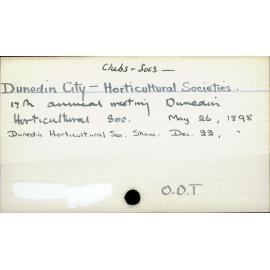 Clubs - Socs —
Dunedin City - Horticultural Societies.
17th annual meeting Dunedin
Horticultural Soc. May 26, 1898
Dunedin Horticultural Soc. Show. Dec. 22, "
O.D.T